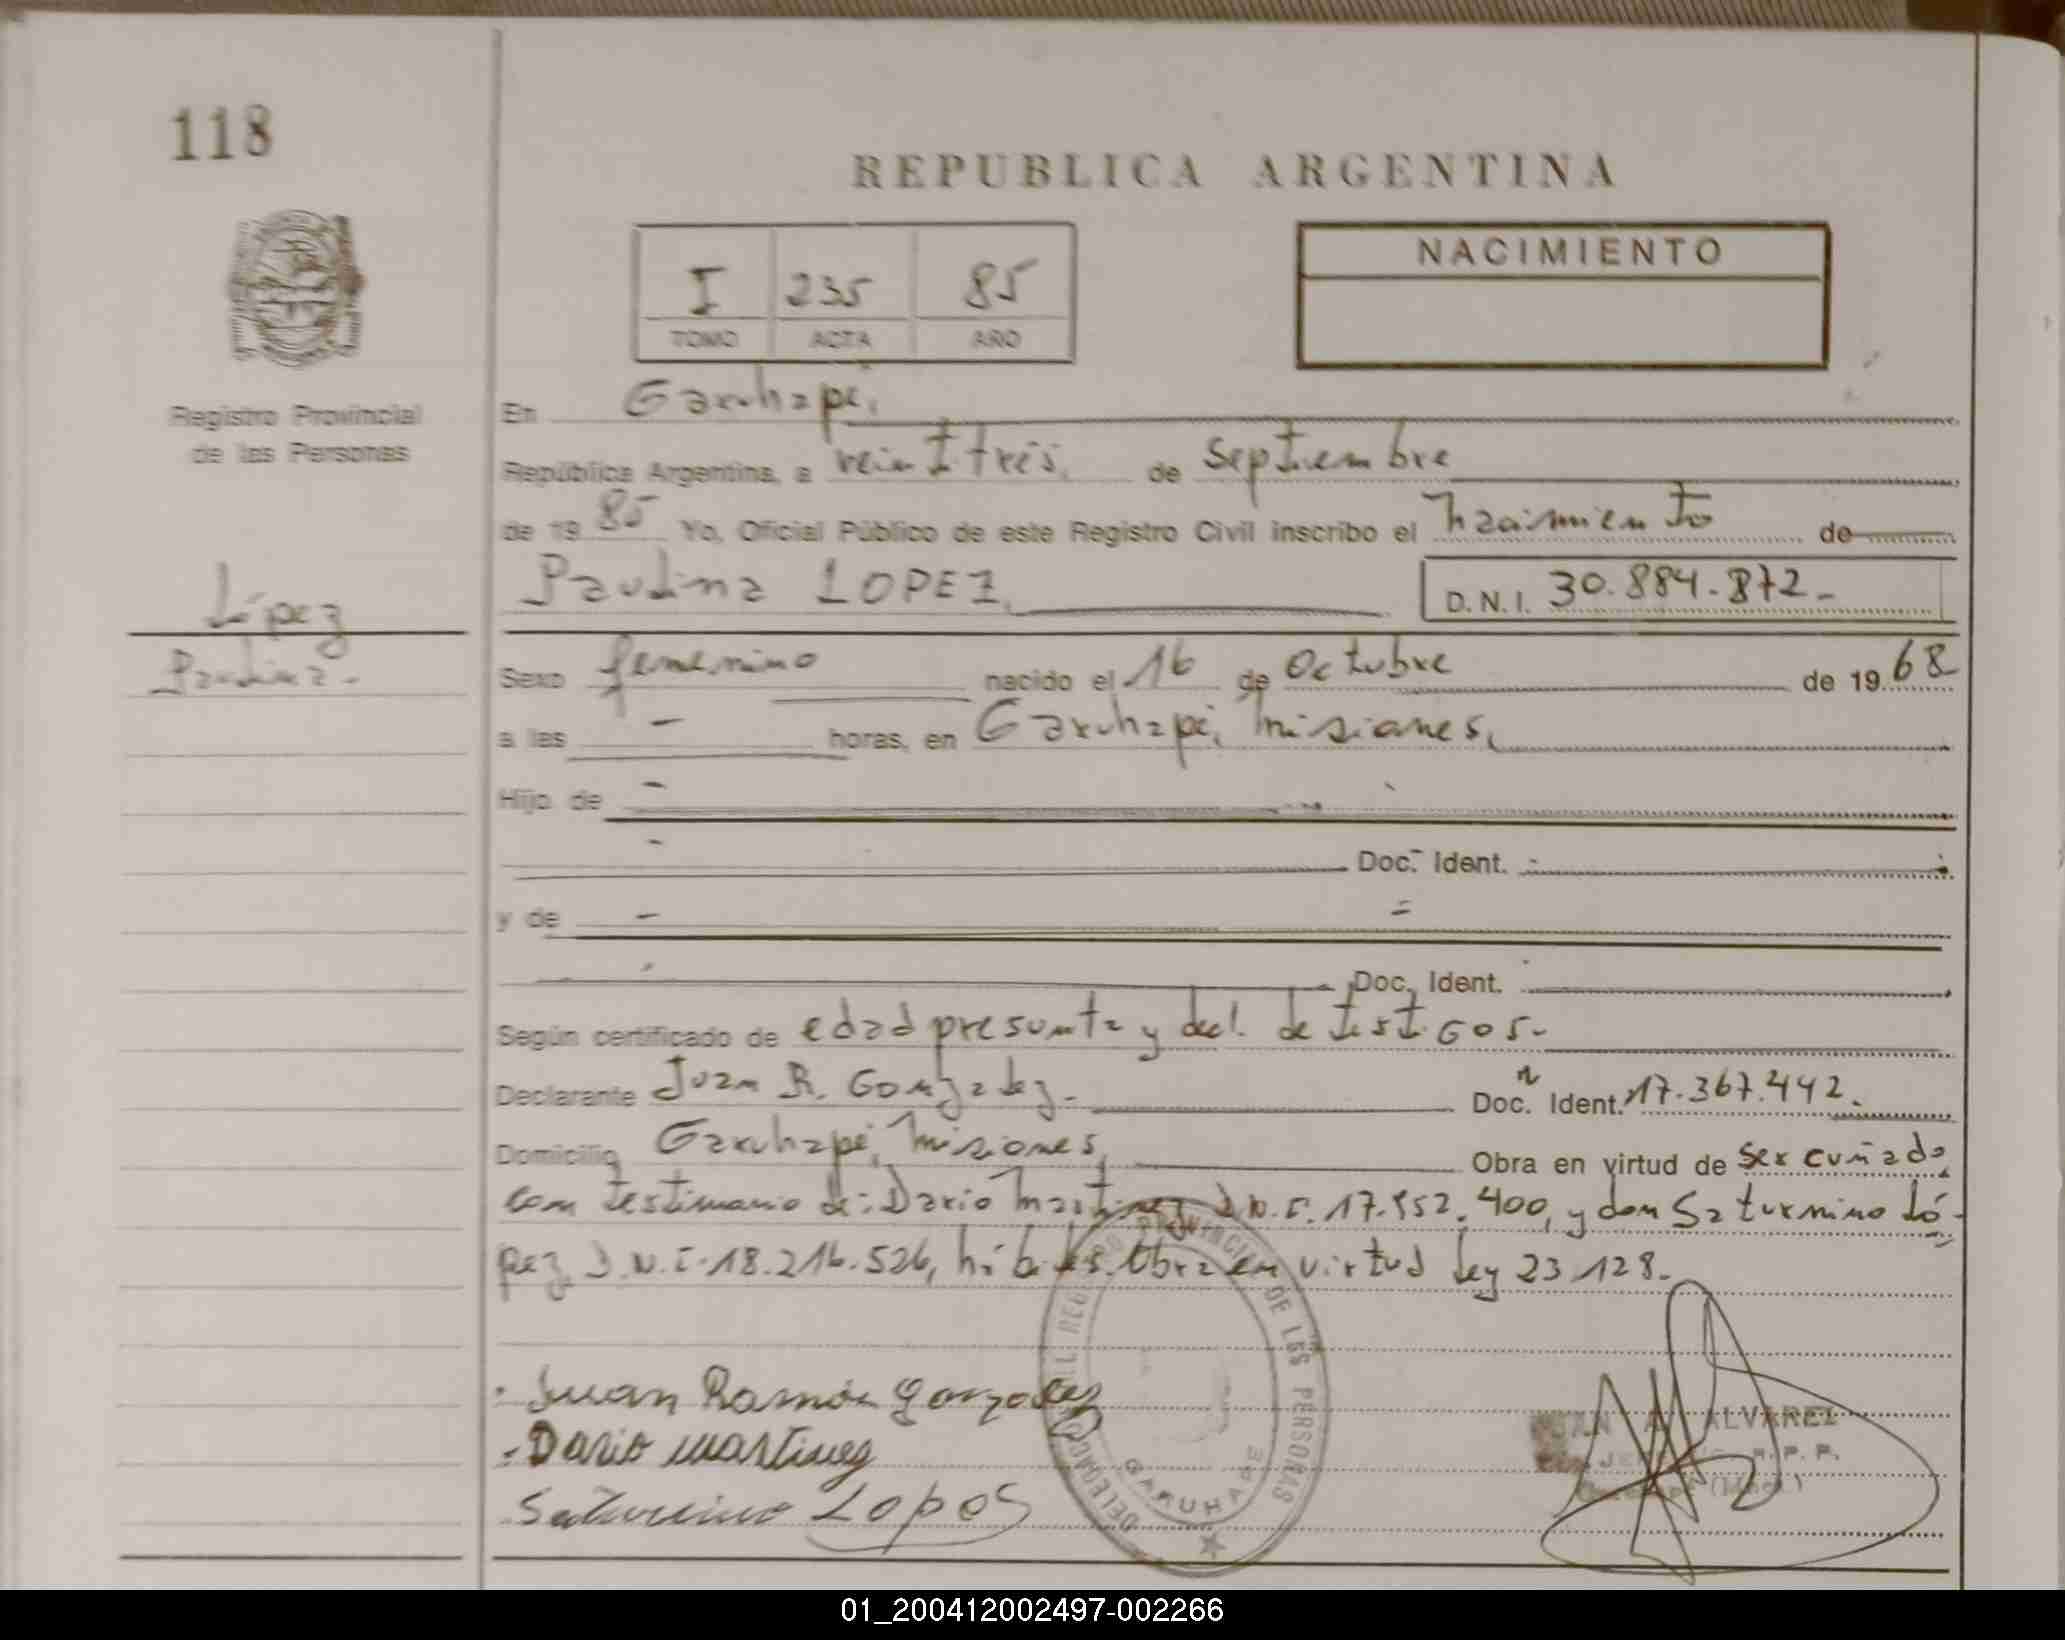 118
REPUBLICA ARGENTINA
I 235 85
TOMO ACTA AÑO
NACIMIENTO
Registro Provincial
de las Personas
En Garuhapé,
República Argentina, a veintitrés, de septiembre
de 1985 Yo, Oficial Público de este Registro Civil inscribo el nacimiento de
Paulina LOPEZ,
D.N.I. 30.884.872-
López
Paulina.-
Sexo femenino nacido el 16 de Octubre de 1968
a las - horas, en Garuhapé, Misiones,
Hijo de -
- Doc. Ident.
y de -
Doc. Ident.
Según certificado de edad presunta y decl. de testigos-
Declarante Juan R. Gonzalez.- Doc. Ident. 17.367.442.
Domicilio Garuhapé, Misiones, Obra en virtud de ser cuñado,
con testimonio de: Dario Martinez D.N.I. 17.952.400, y don Saturnino Ló-
pez, D.N.I. 18.216.526, hábiles. Obra en virtud Ley 23.128.-
Juan Ramón Gonzalez
Dario Martinez
Saturnino Lopes
DELEGACION REGISTRO PROVINCIAL DE LAS PERSONAS
GARUHAPE
ALVAREZ
R.P.P.
01_200412002497-002266